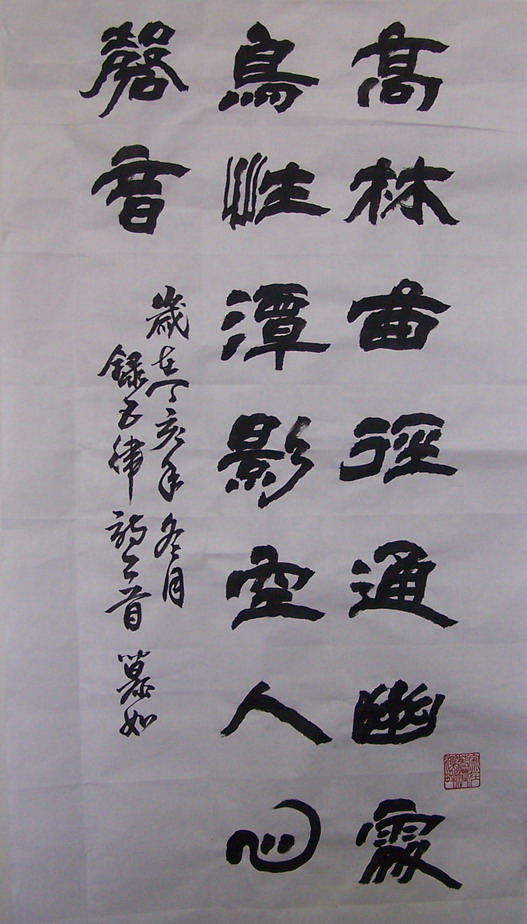 高林曲徑通幽處
鳥性潭影空人心
磬音
歲在丁亥年冬月
錄五律詩一首 慕如